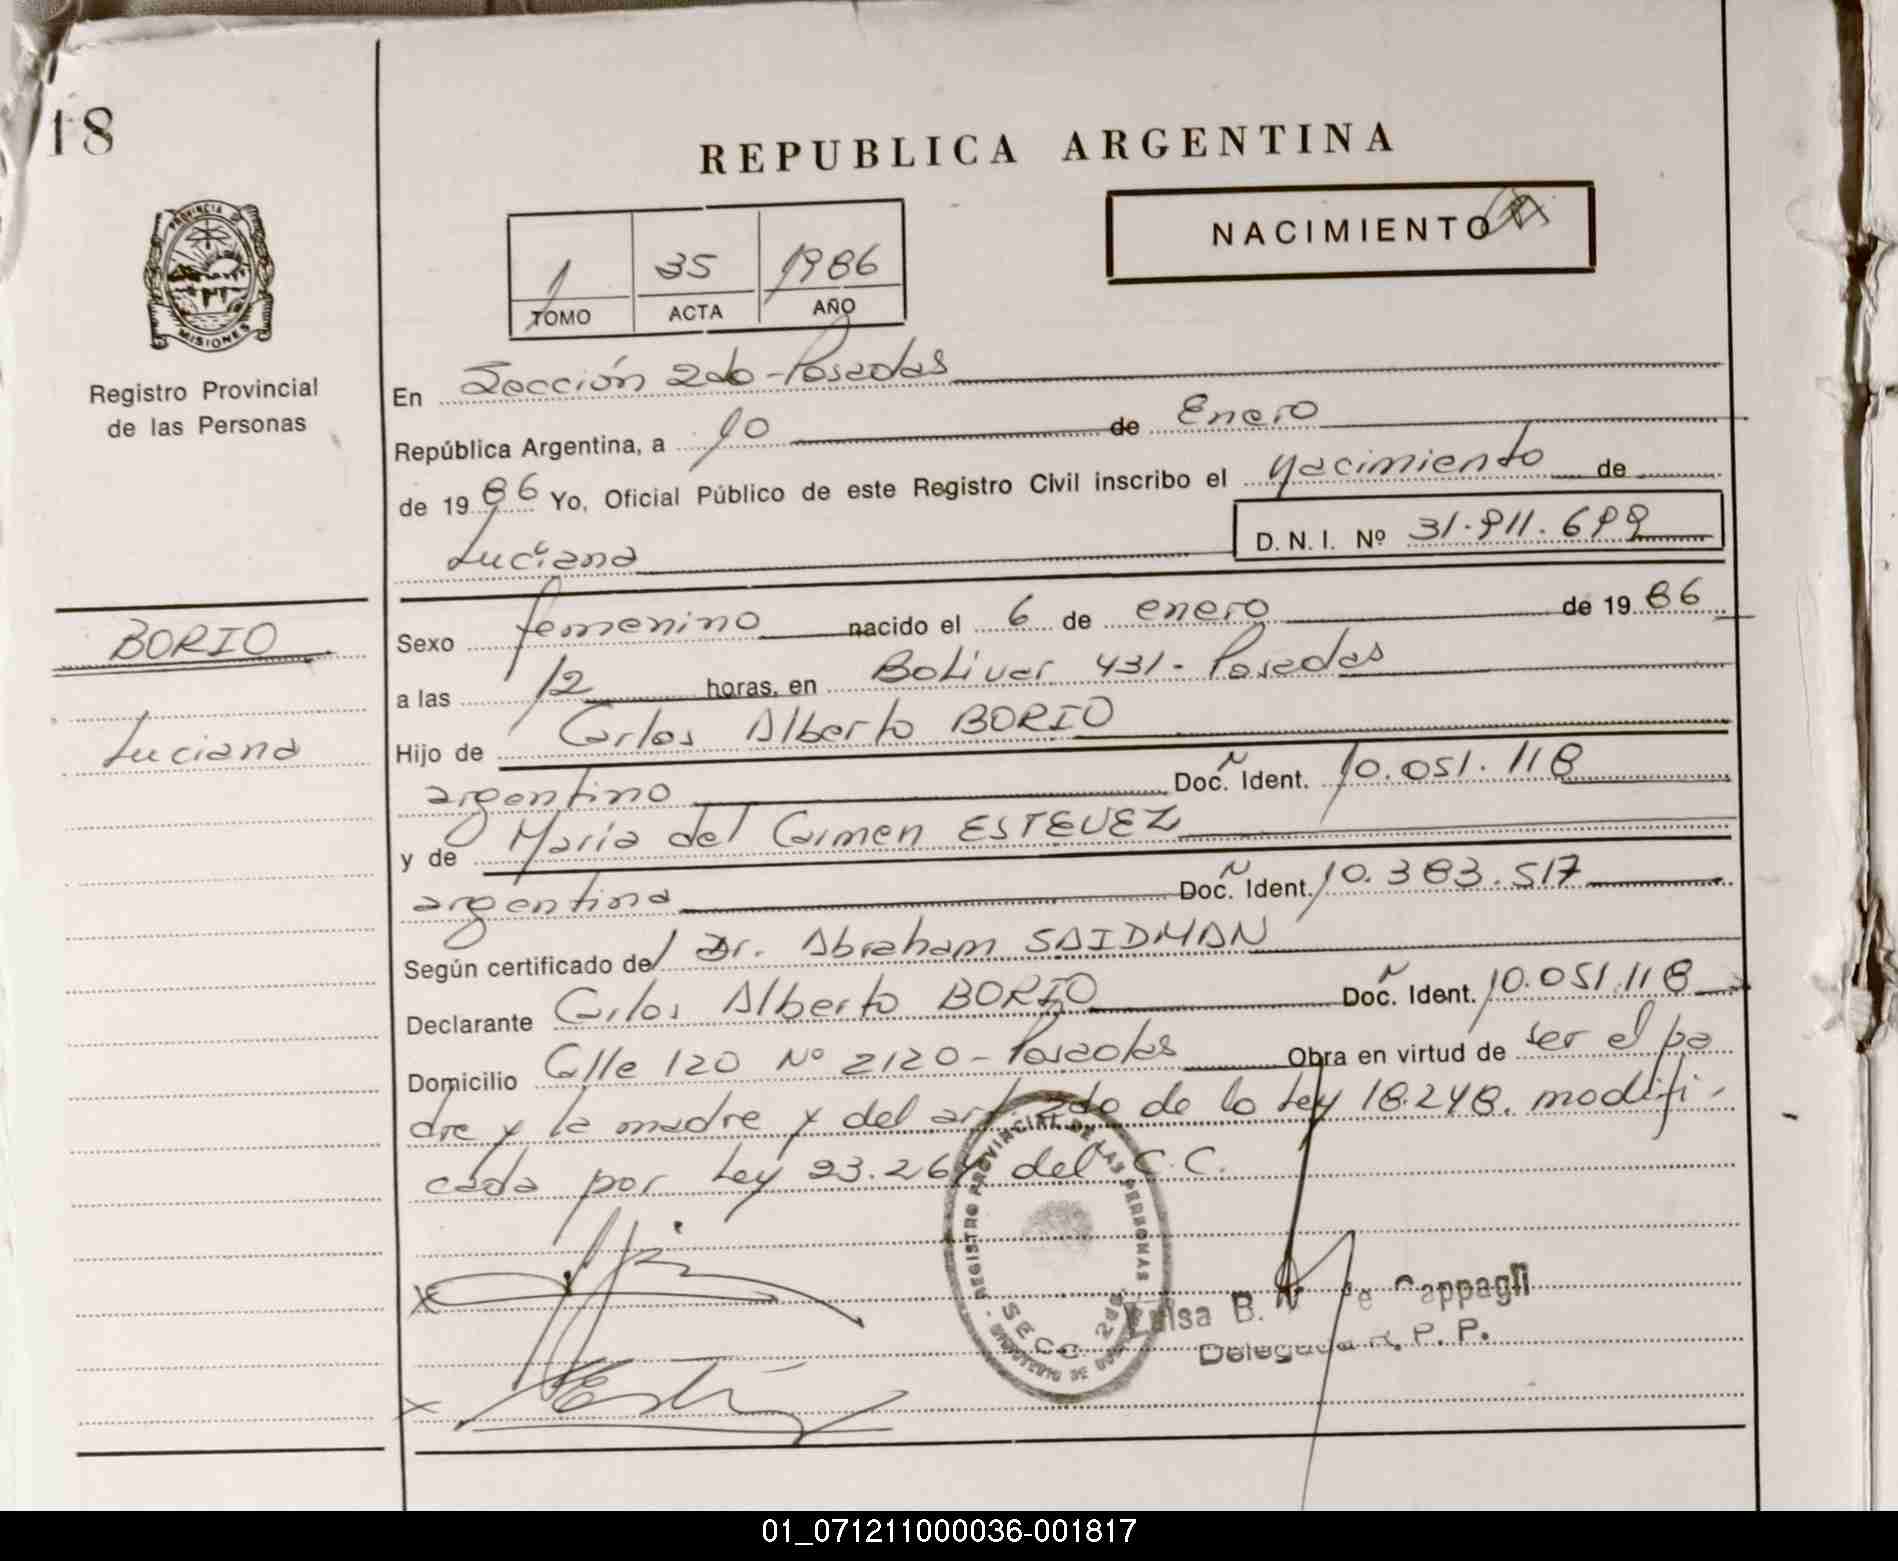 18
REPUBLICA ARGENTINA
NACIMIENTO
1 35 1986
TOMO ACTA AÑO
PROVINCIA DE MISIONES
Registro Provincial
de las Personas
En Sección 2da - Posadas
República Argentina, a 10 de Enero
de 1986 Yo, Oficial Público de este Registro Civil inscribo el nacimiento de
Luciana D. N. I. Nº 31.911.699
BORIO
Luciana
Sexo femenino nacido el 6 de enero de 1986
a las 12 horas, en Bolivar 431 - Posadas
Hijo de Carlos Alberto BORIO
argentino Doc. Ident. 10.051.118
y de María del Carmen ESTEVEZ
argentina Doc. Ident. 10.383.517
Según certificado del Dr. Abraham SAIDMAN
Declarante Carlos Alberto BORIO Doc. Ident. 10.051.118
Domicilio Calle 120 Nº 2120 - Posadas Obra en virtud de ser el pa
dre y la madre y del art. 2do de la Ley 18.248. modifi
cada por Ley 23.264 del C.C.
REGISTRO PROVINCIAL DE LAS PERSONAS
SECC. 2da
Luisa B. de Cappagli
Delegada R. P. P.
01_071211000036-001817